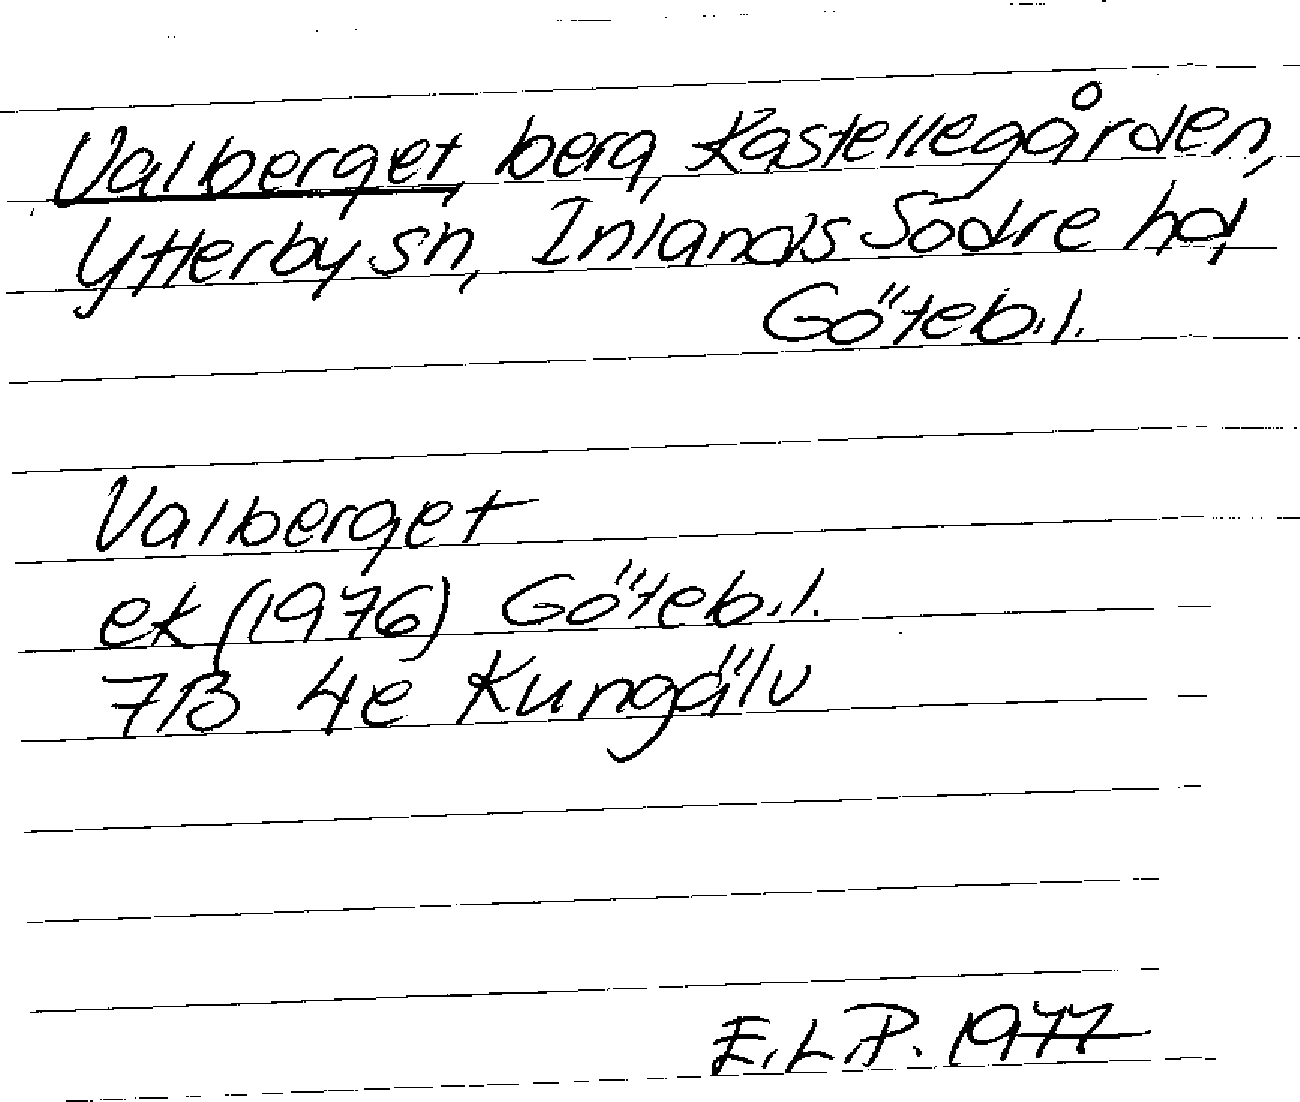 Valberget, berg, Kastellegården,
Ytterby sn, Inlands Södre hd,
Göteb.l.
Valberget
ek (1976) Göteb.l.
7B 4e Kungälv
E.L.P. 1977